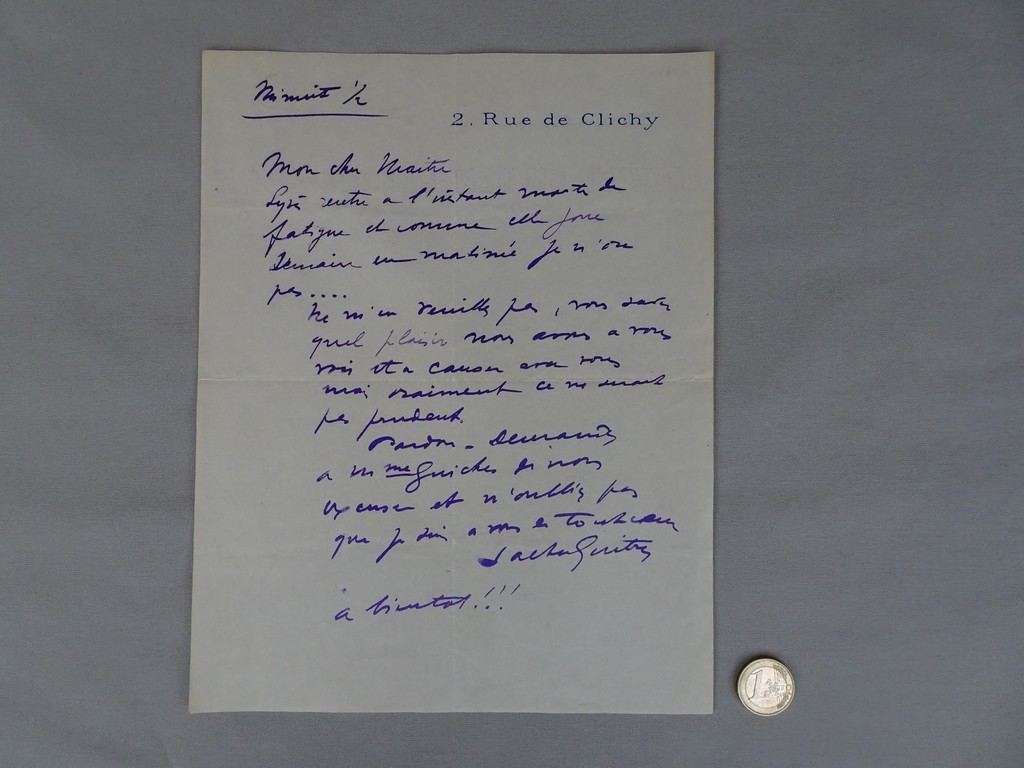 Minuit 1/2
2. Rue de Clichy
Mon cher Maitre
rentre a l'instant morte de
fatigue et comme elle joue
Demain en matinée je n'ose
pas....
Ne m'en veuillez pas, vous savez
quel plaisir nous avons a vous
voir et a causer avec vous
mais vraiment ce ne serait
pas prudent.
Pardon - Demandez
a Mme Guiches de nous
excuser et n'oubliez pas
que je suis a vous de tout coeur
Sacha Guitry
a bientot!!!
1